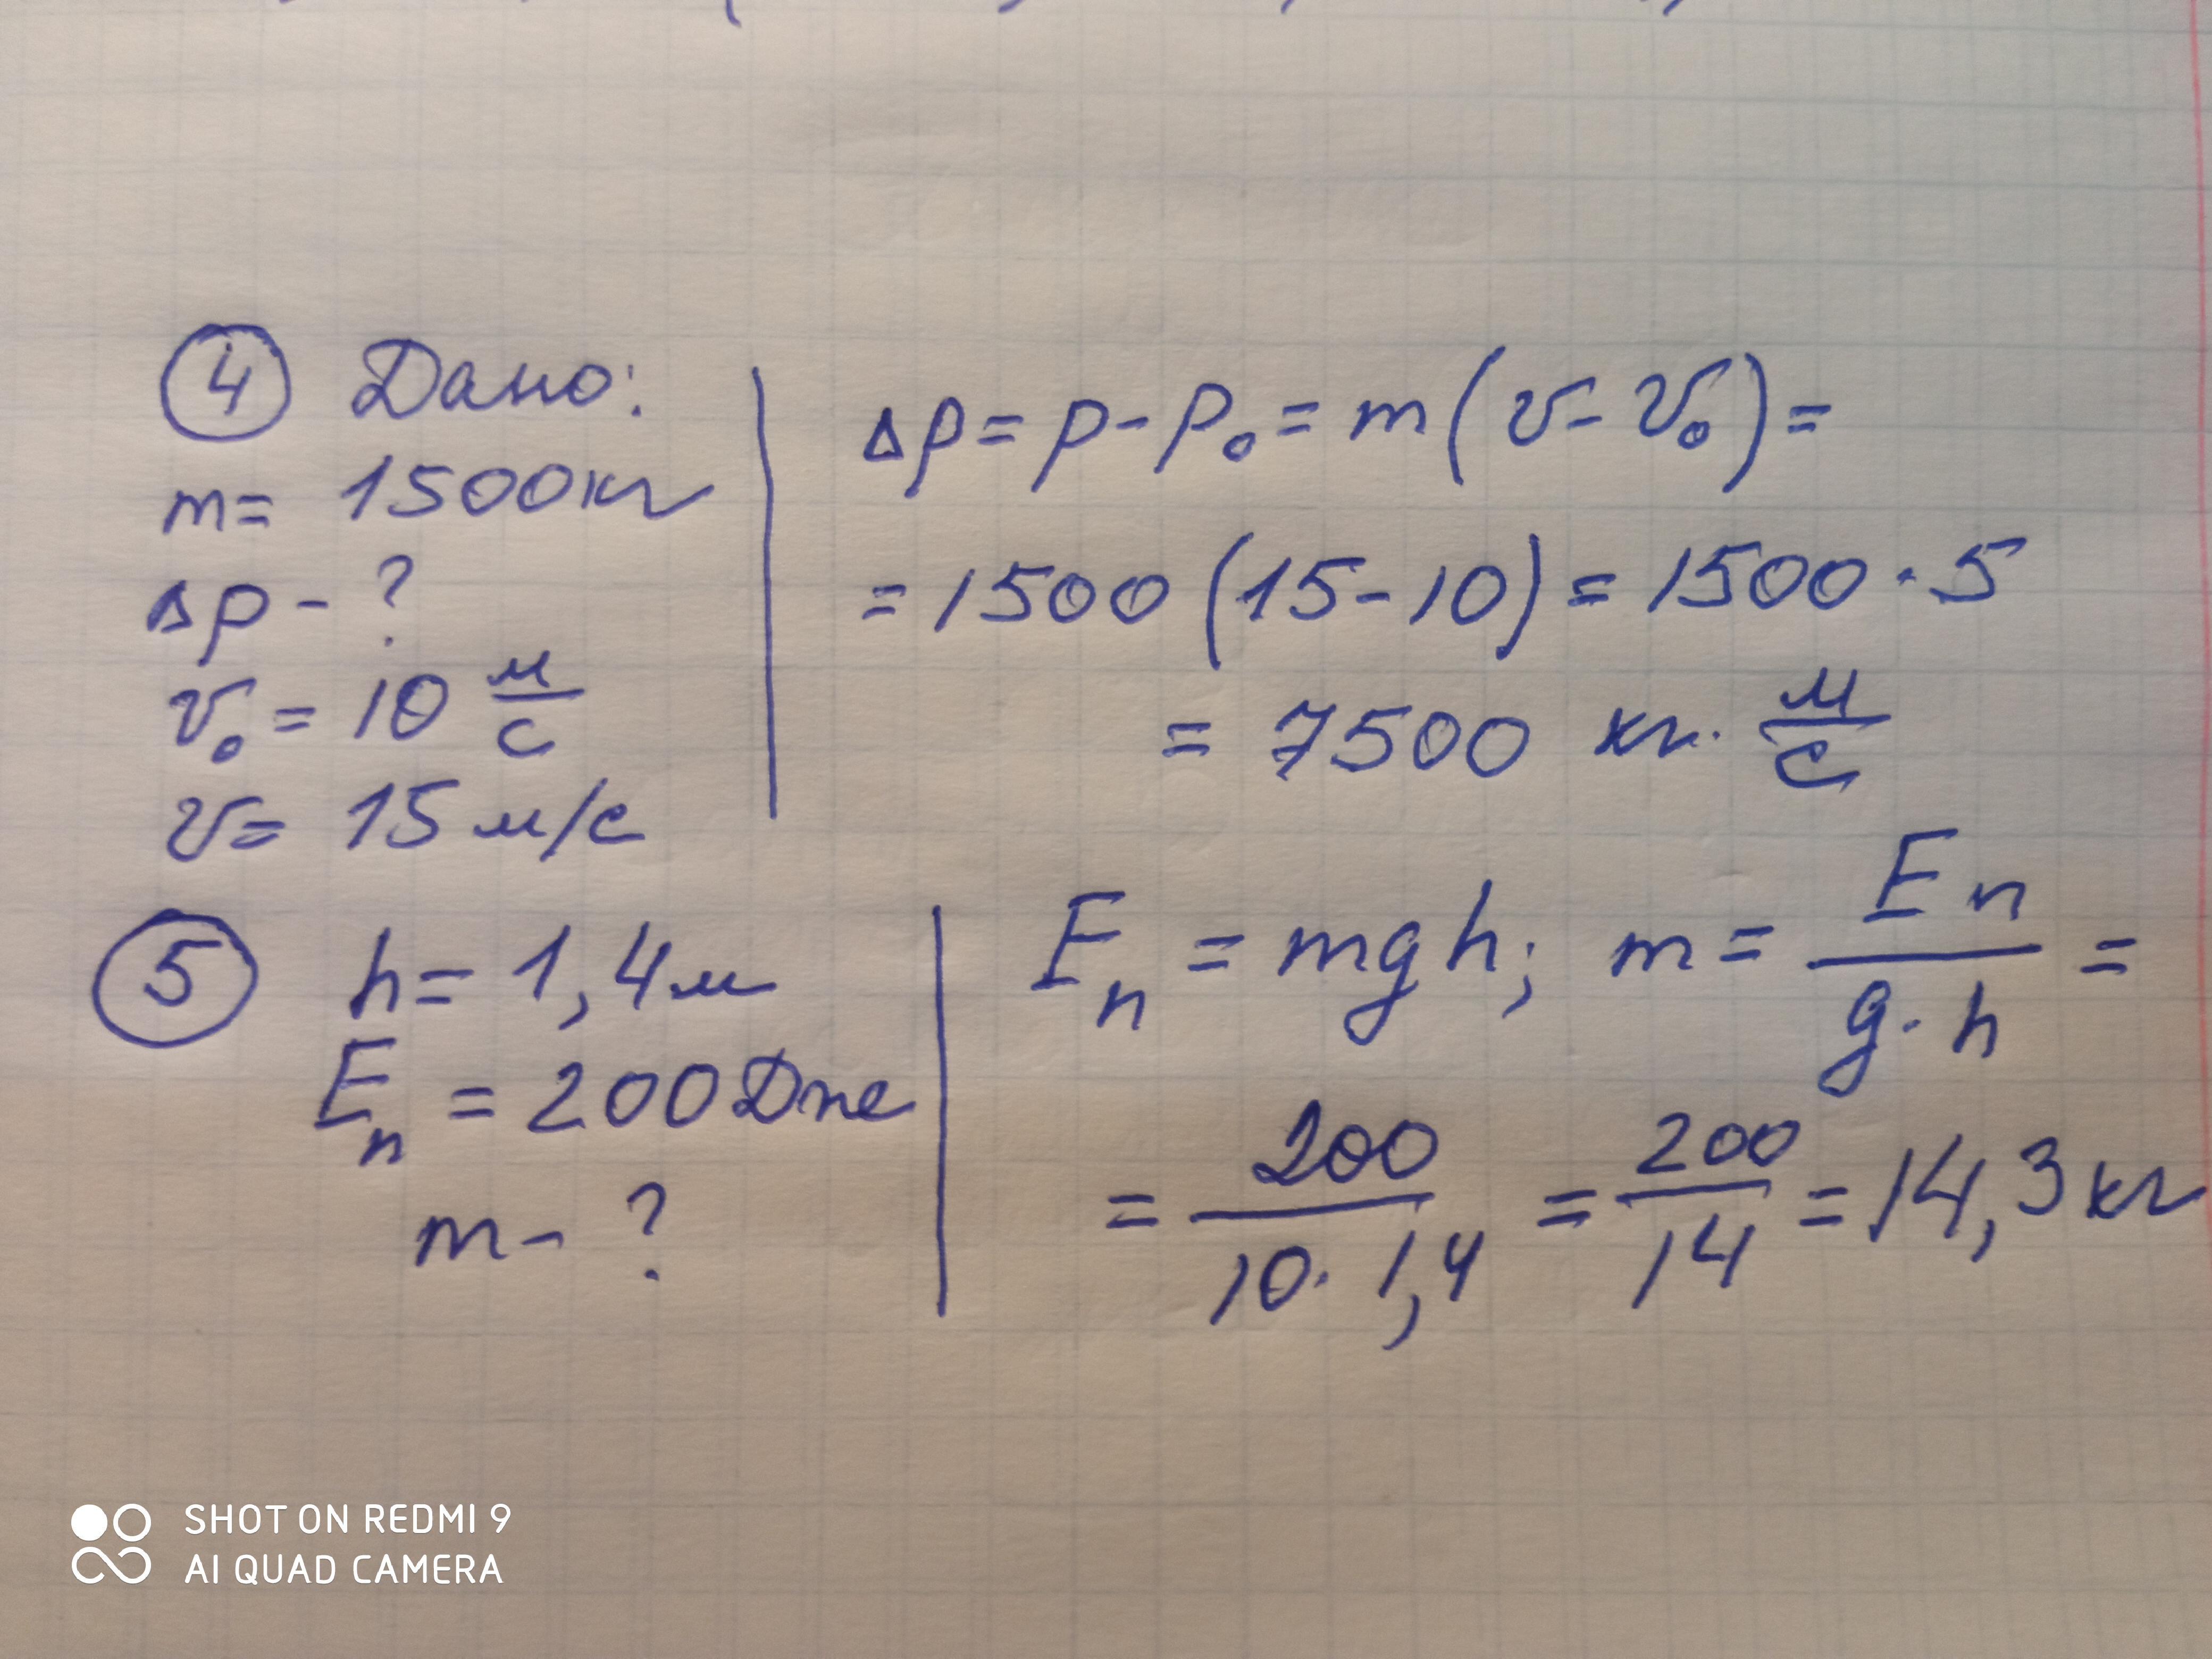 ④ Дано:
m = 1500 кг
Δp - ?
v₀ = 10 м/с
v = 15 м/с
Δp = p - p₀ = m(v - v₀) =
= 1500 (15 - 10) = 1500 · 5
= 7500 кг · м/с
⑤ h = 1,4 м
Eп = 200 Дж
m - ?
Eп = mgh; m = Eп / g · h =
= 200 / 10 · 1,4 = 200 / 14 = 14,3 кг
SHOT ON REDMI 9
AI QUAD CAMERA